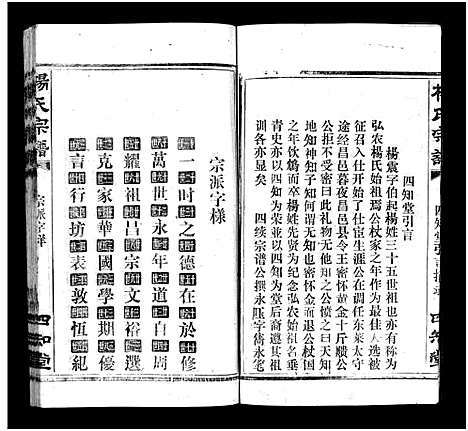 楊氏宗譜
四知堂引言
四知堂
四知堂引言
楊震字伯起楊姓三十五世祖也亦有称为
弘农楊氏始祖焉公杖家之年作为最佳人选被
征召入仕开始了仕宦生涯公调任东莱太守
途经昌邑暮夜昌邑县令王密怀黄金十斤赎公
公拒不受密曰此礼也无他知之公愤之曰天知
地知神知子知何谓无知也密怀金而退公杖国
之年饮鸩而卒楊姓先贤为纪念弘农始祖名垂
青史亦以四知为荣並以四知为堂后裔遵其祖
训各亦显矣
四续宗谱公撰永
宗派字样
一时之德在於修
萬世永年道自周
耀祖昌宗文裕選
克家華國學期優
言行坊表敦恆紀
楊氏宗譜
宗派字样
四知堂